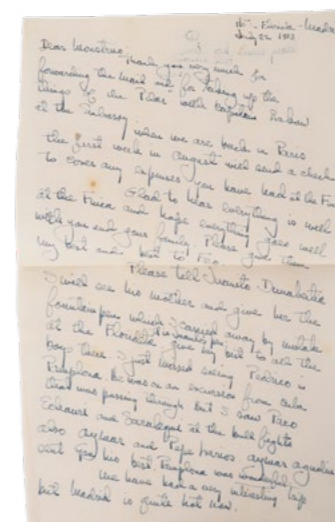 Madrid
July 22 1953
Dear Monstruo:
Thank you very much for
forwarding the mail and for taking up the
things of the Pilar with Captain
at the Embassy. When we are back in Paris
the first week in August will send a check
to cover any expenses you have had at the
Glad to hear everything is well
at the Finca and hope everything goes well
with you and your family. Please give them
my best and best to
Please tell Juanito Dunabeitia
I will see his mother and give her the
fountain pen which I carried away by mistake
at the Floridita. Give my best to all the
boys there. I just missed seeing Pedrico in
Pamplona. He was on an excursion from Cuba
that was passing through but I saw Paco
and at the bull fights
also and Pepe
sent you his best. Pamplona was wonderful.
We have had a very interesting trip
but Madrid is quite hot now.